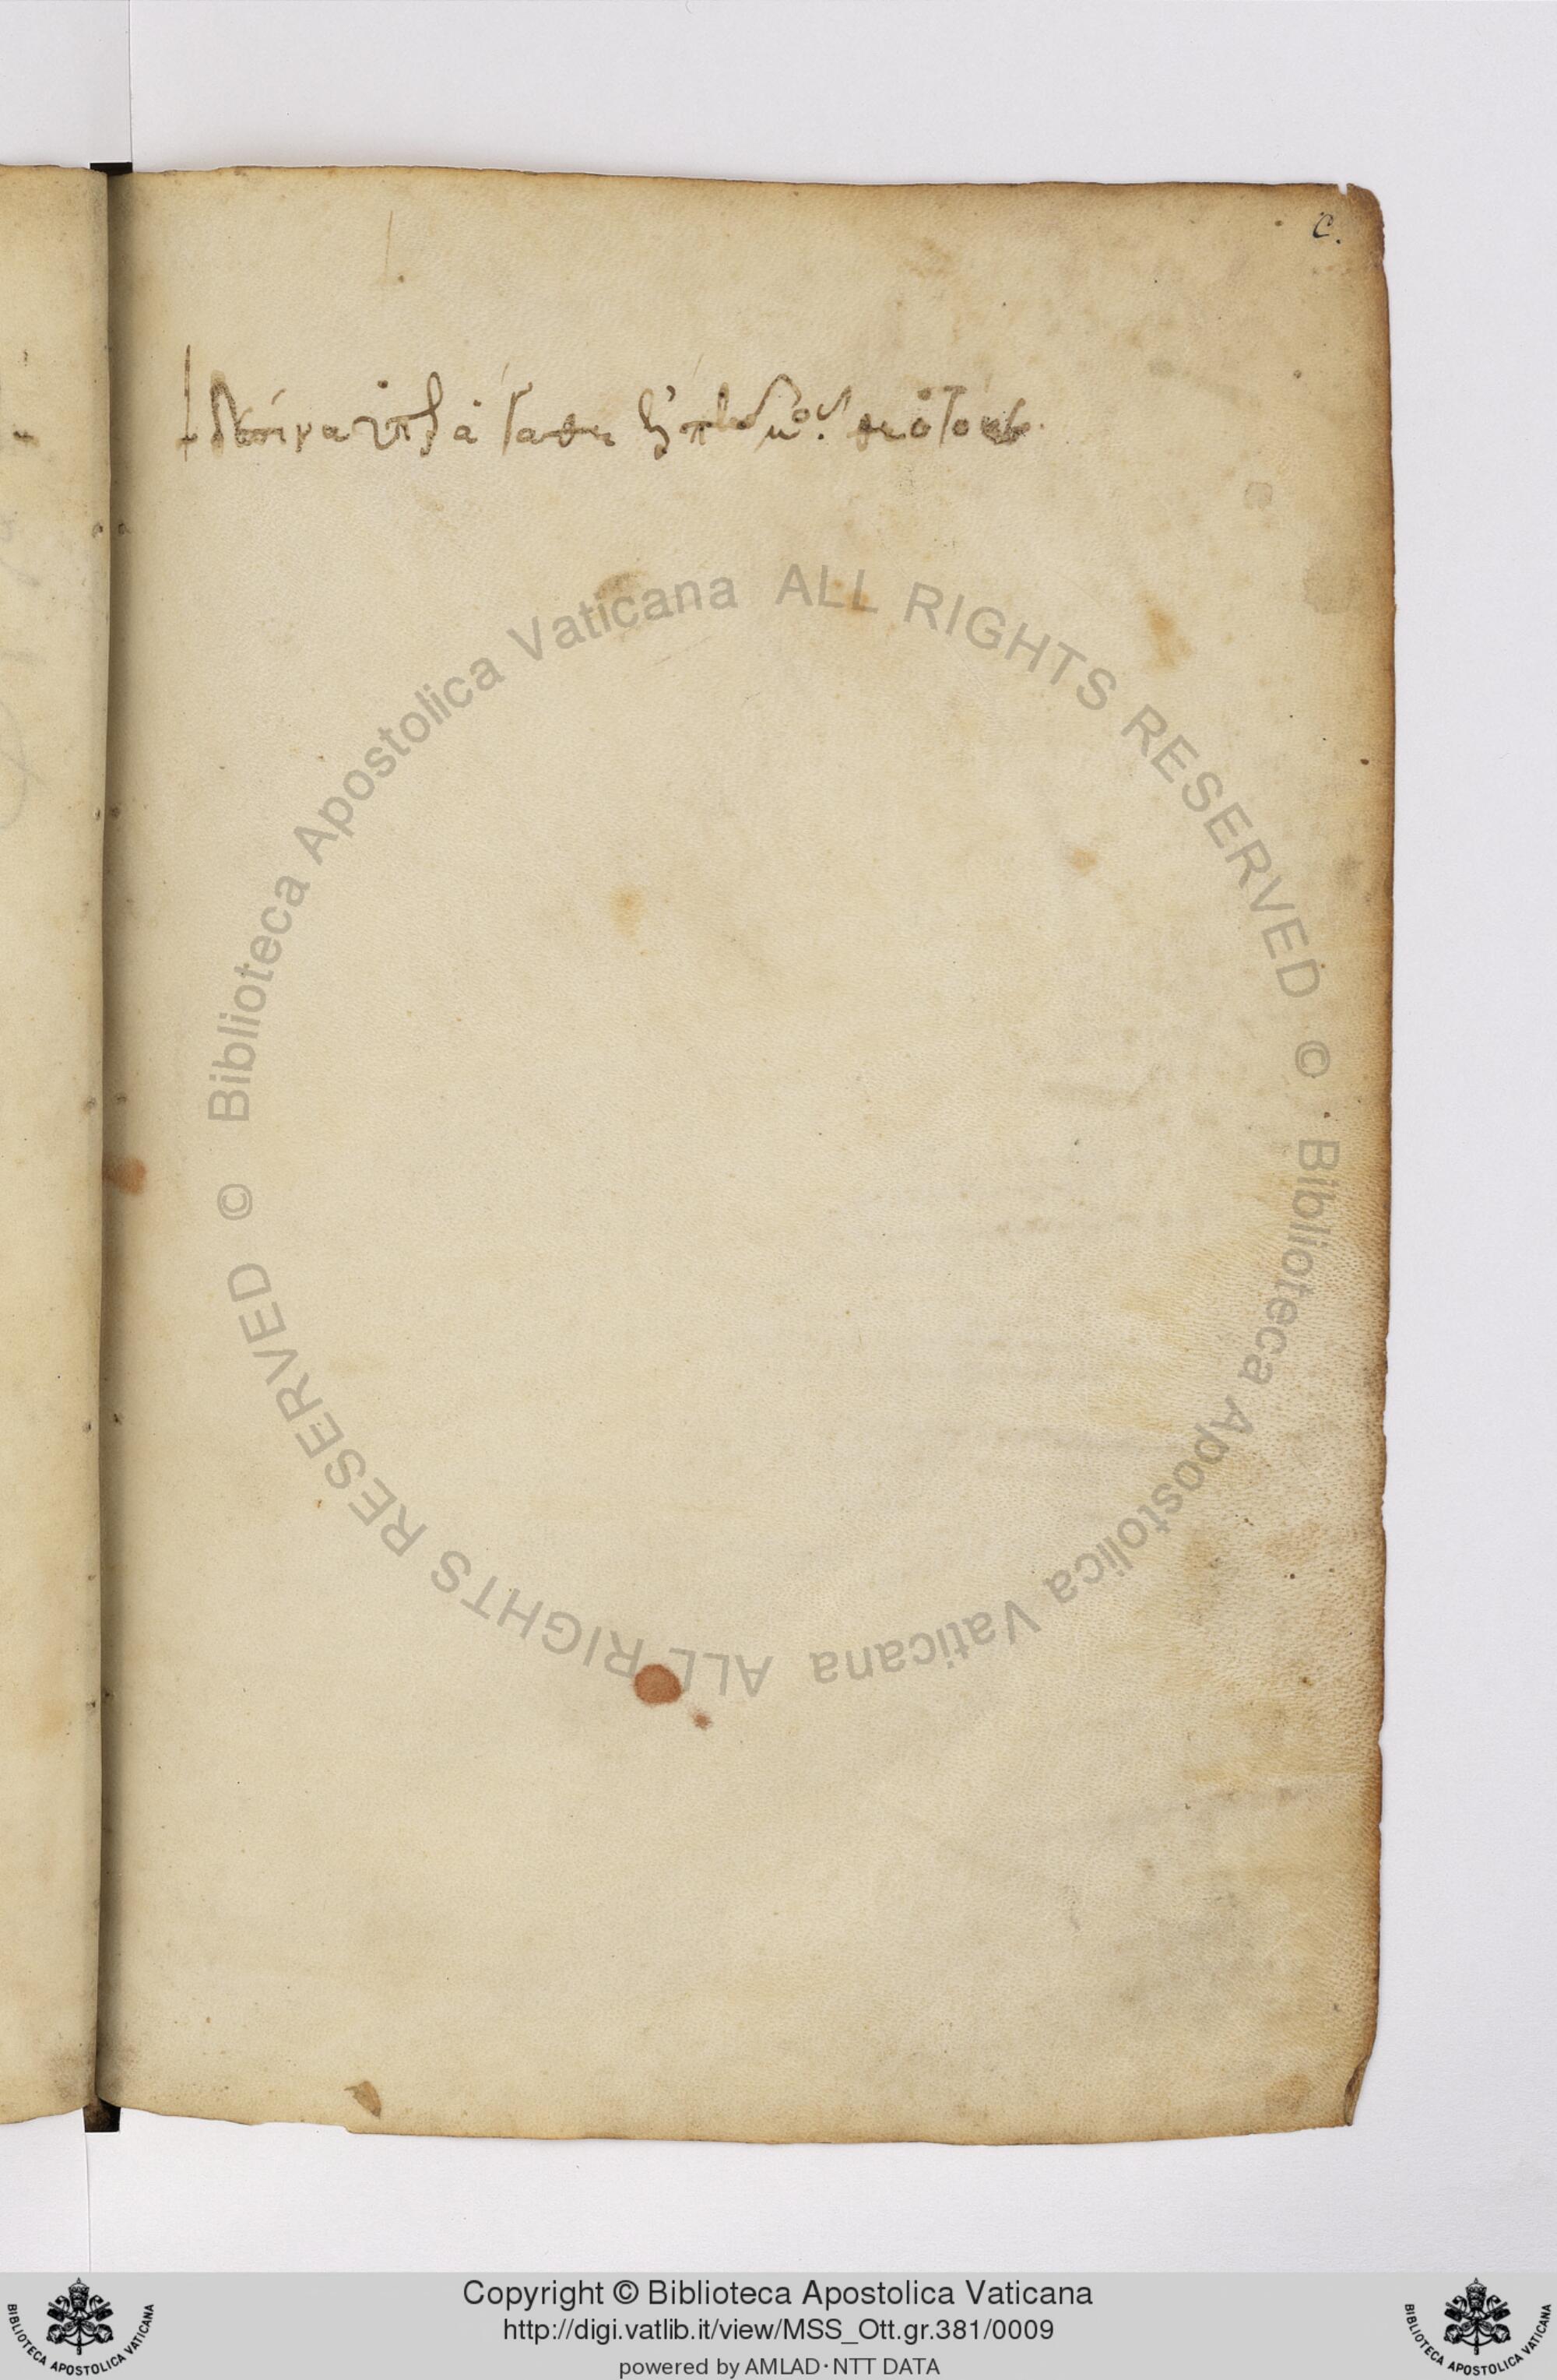 c.
δέσποινα μου θεοτόκε
© Biblioteca Apostolica Vaticana ALL RIGHTS RESERVED © Biblioteca Apostolica Vaticana ALL RIGHTS RESERVED
Copyright © Biblioteca Apostolica Vaticana
http://digi.vatlib.it/view/MSS_Ott.gr.381/0009
powered by AMLAD·NTT DATA
BIBLIOTECA APOSTOLICA VATICANA
BIBLIOTECA APOSTOLICA VATICANA